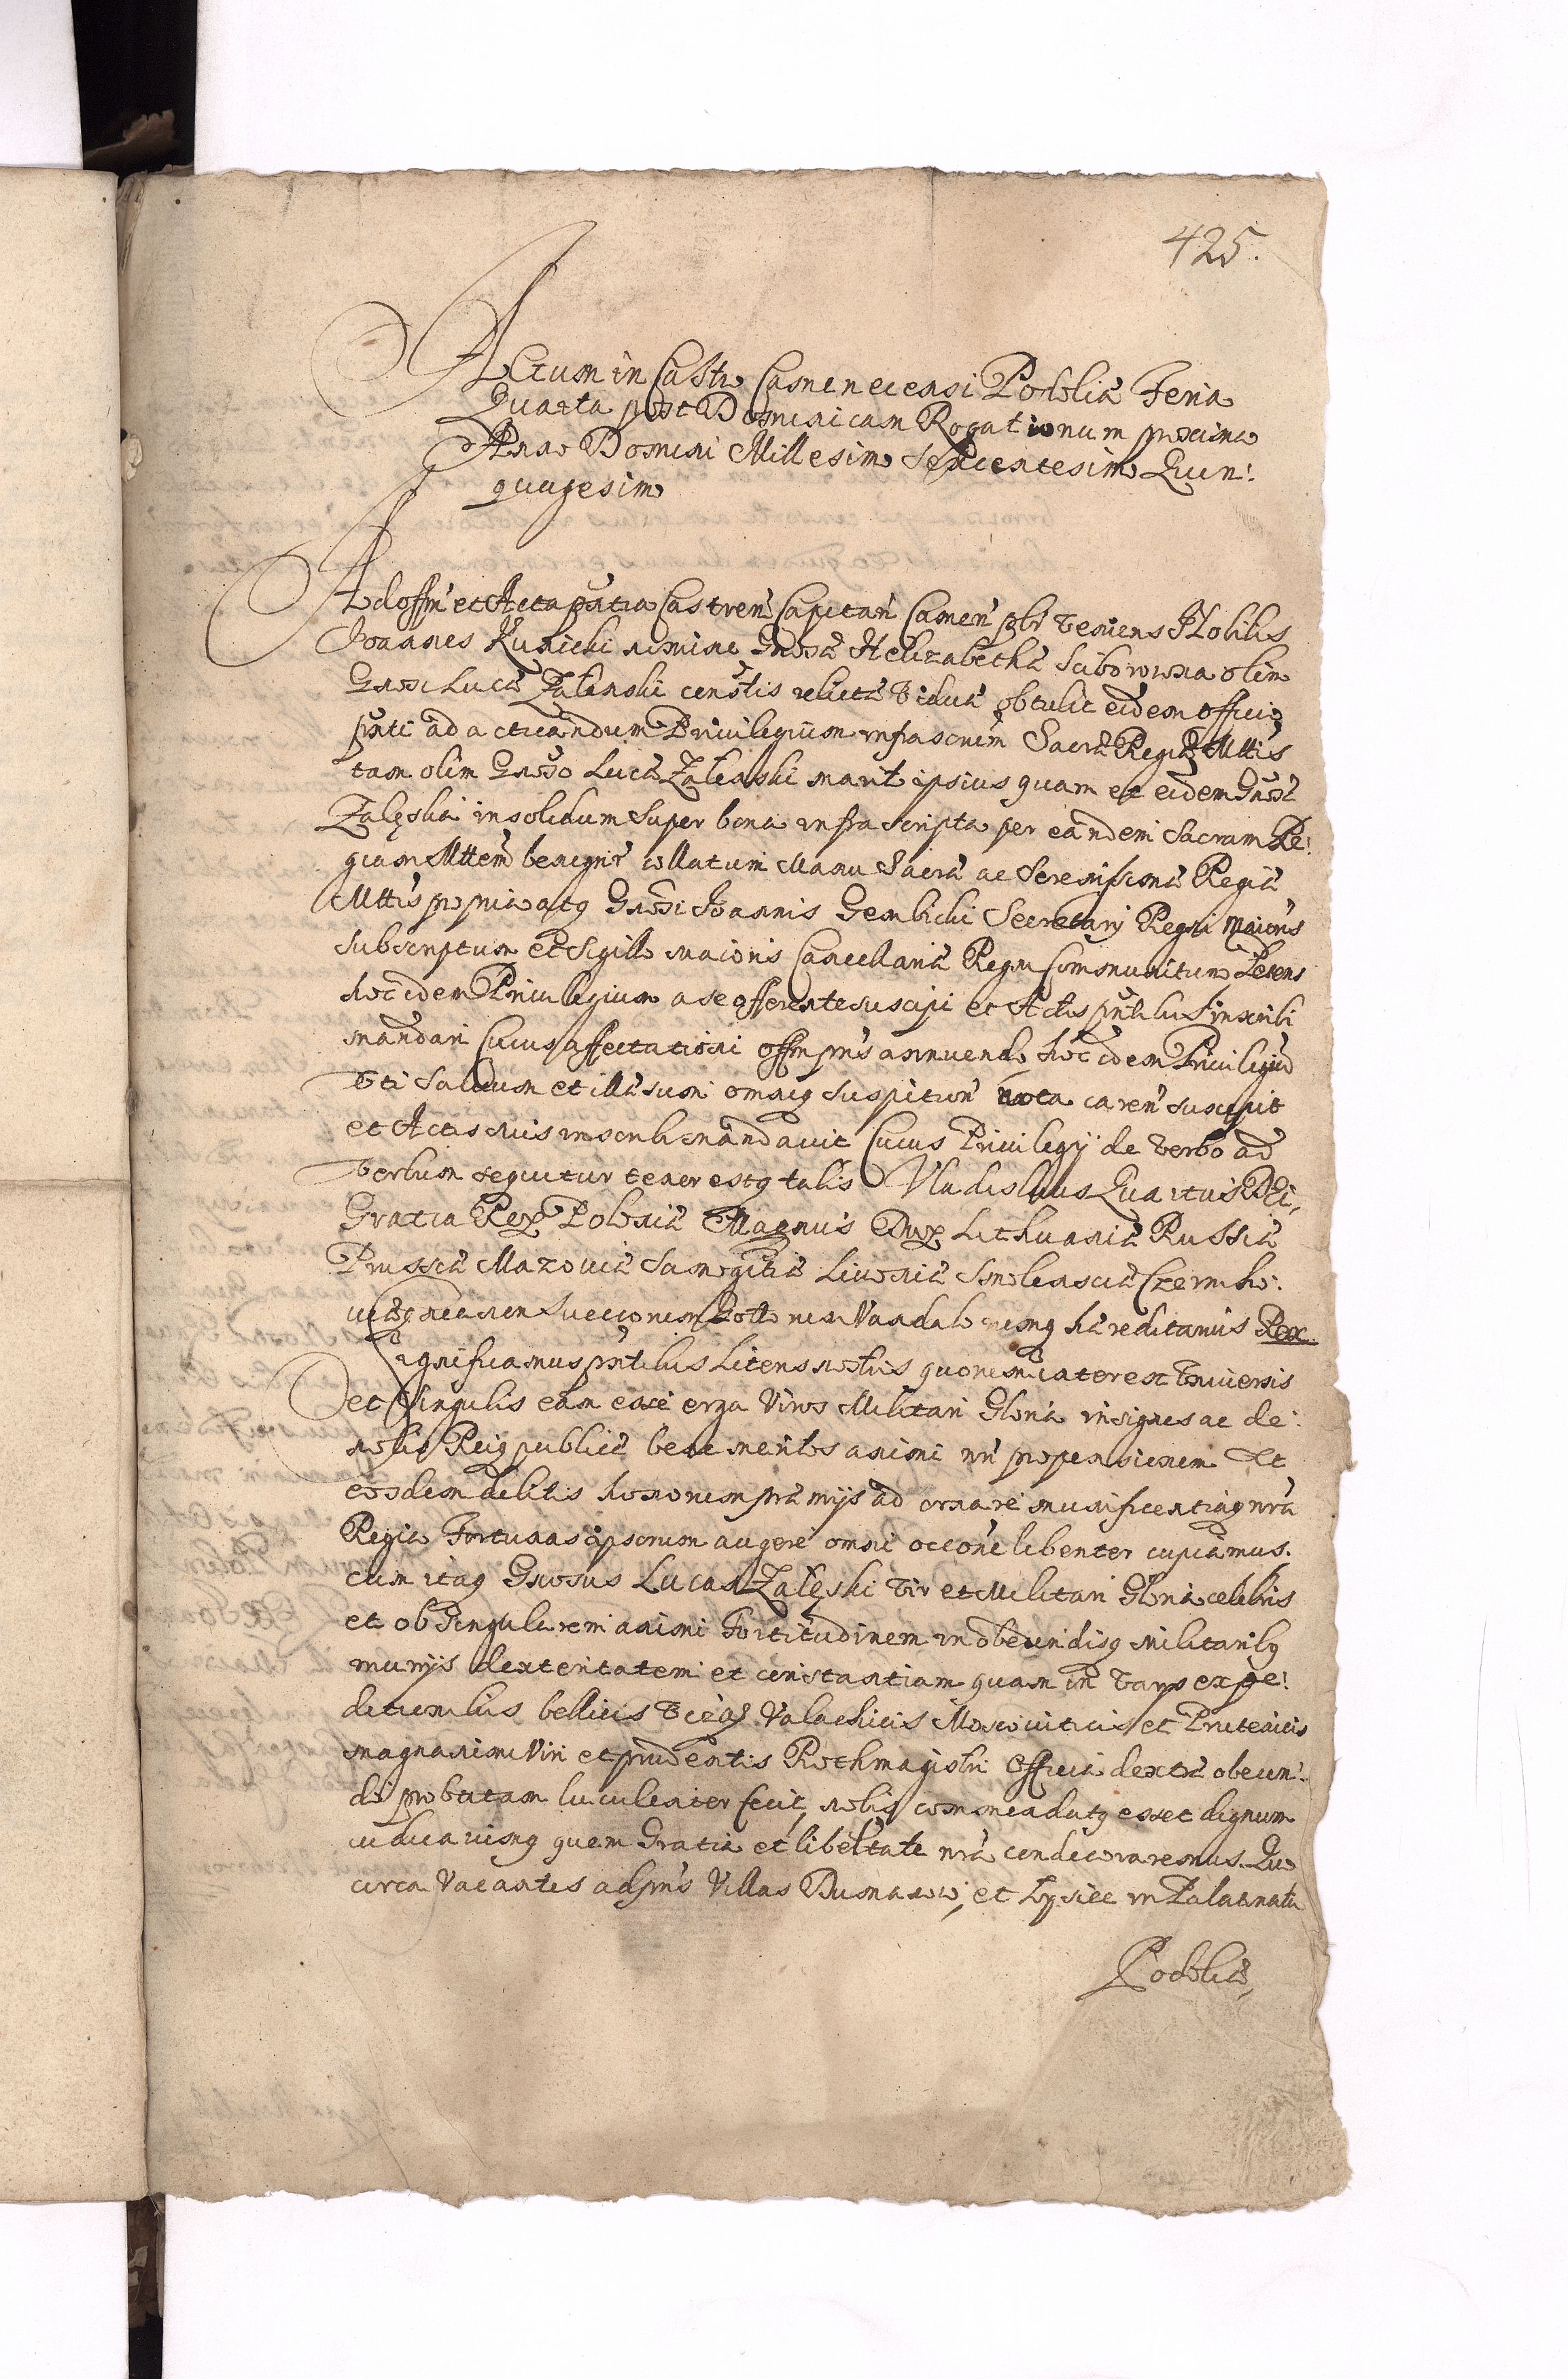 425.
Actum in Castro Camenecensi Podoliæ Feria
Quarta post Dominicam Rogationum proxima
Anno Domini Millesimo Sexcentesimo Quin:
quagesimo
Ad offm et Acta pñtia Castreñ Capitañ Cameñ plr veniens Nobilis
Joannes Kunicki nomine Gñosæ Helizabethæ Sciborowna olim
Gñosi Lucæ Zalenski consortis relictæ viduæ obtulit eidem officio
pñti ad acticandum Privilegium infrascriptum Sacræ Regiæ Mttis
tam olim Gnoso Lucæ Zalenski mariti ipsius quam et eidem Gnosæ
Zalęska in solidum super bona infra scripta per eandem Sacram Re:
giam Mttem benigne collatum Manu Sacræ ac Serenissimæ Regiæ
Mttis propria atq Gnosi Joannis Gembicki Secretarij Regni Maioris
subscriptum et Sigillo maioris Cancellariæ Regni Communitum Petens
hoc idem Privilegium a se offerente suscipi et Actis pñtibus inscribi
mandari Cuius affectationi offm pns annuendo hoc idem Privilegiũ
uti salvum et illæsum omniq suspitioñ nota careñ suscepit
et Actis suis inscribi mandavit Cuius Privilegij de verbo ad
verbum sequitur tenor estq talis Vladislaus Quartus Dei
Gratia Rex Poloniæ Magnus Dux Lithuaniæ Russiæ
Prussiæ Mazoviæ Samogitiæ Livoniæ Smolensciæ Czernicho:
viæq necnon Suecorum Gottorum Vandalorumq hæreditarius Rex
Significamus pñtibus Literis nostris quorum interest Universis
et singulis eam esse erga Viros Militari Gloria insignes ac de
nobis Reiqpublicæ bene meritos animi nri propensionem Ut
eosdem debitis honorum præmijs ad ornare munificentiaq nra
Regia Fortunas ipsorum augere omni occone libenter cupiamus.
cum itaq Gnosus Lucas Zalęski Vir et Militari Gloria celebris
et ob singularem animi Fortitudinem in obeundisq militaribq
munijs dexteritatem et constantiam quam in varijs expe:
ditionibus bellicis Valachicis Moscoviticis et Prutenicis
magnanimi Viri et prudentis Rothmagistri officia dextre obeun:
do probatam luculenter fecit, nobis commendatq esset dignum
iudicavimq quem Gratia et libertate nra condecoraremus. Quo
circa Vacantes ad pns Villas Dumanow, et Lysiec in Palatinatu
Podoliæ,